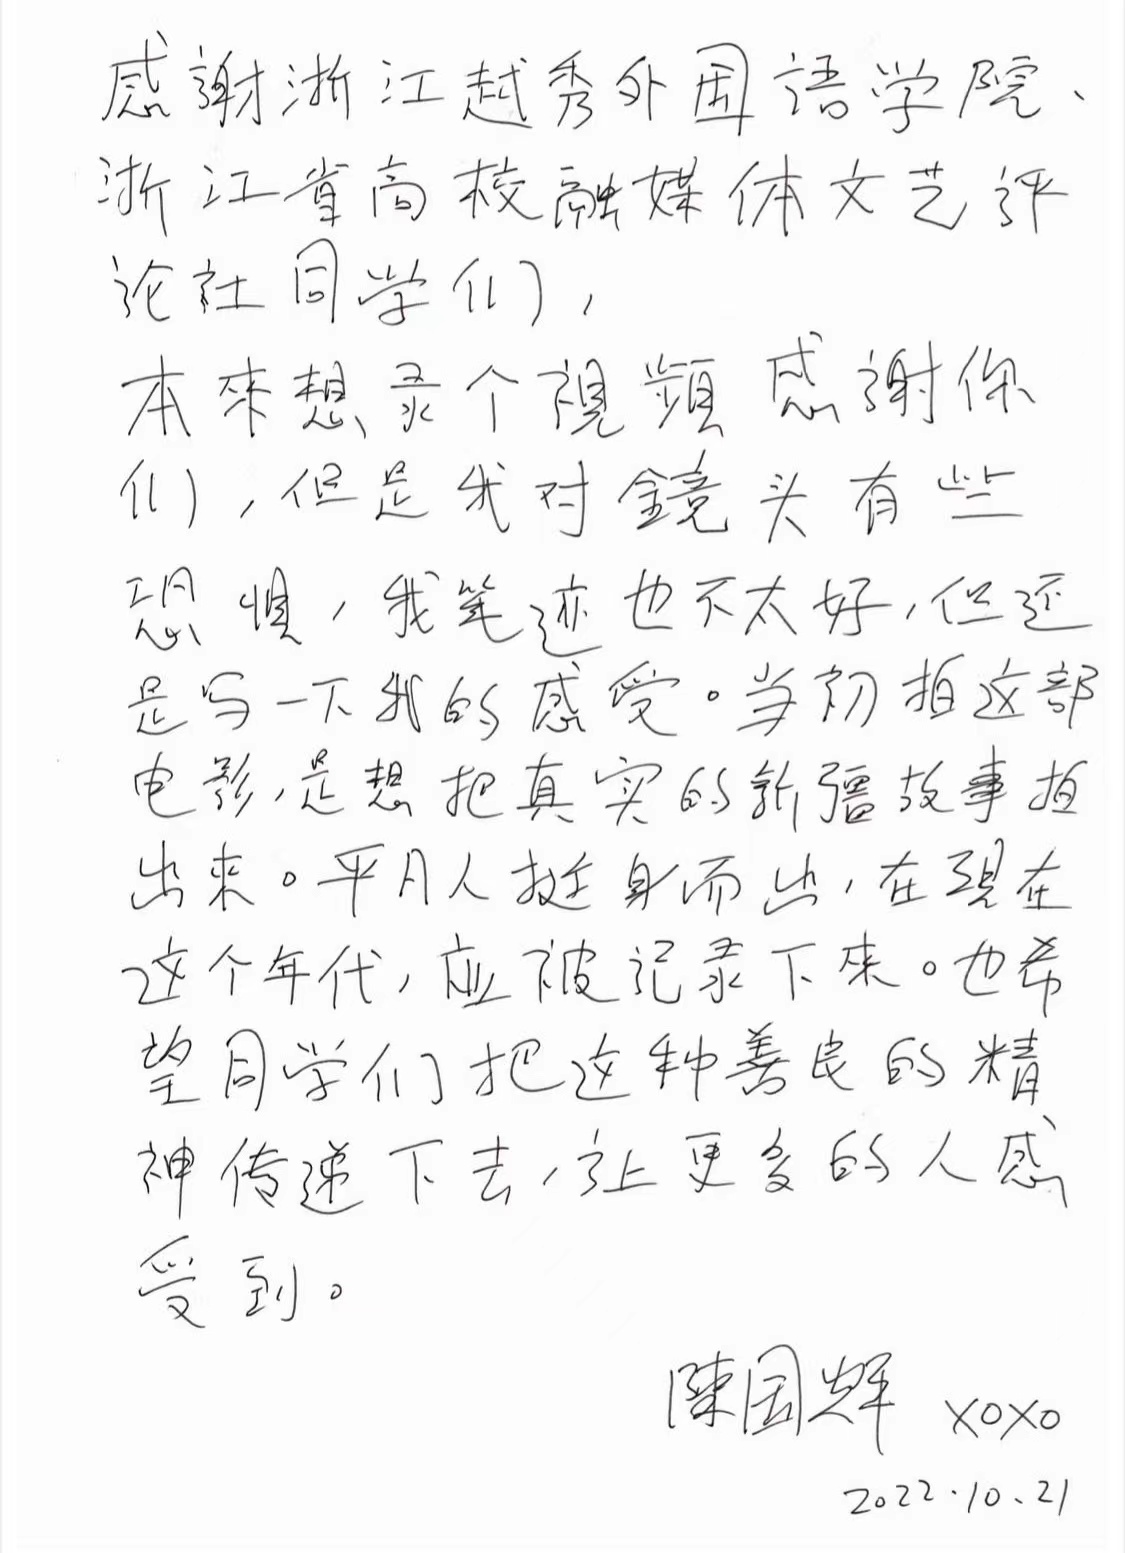 感謝浙江越秀外国語学院、
浙江省高校融媒体文艺評
论社同学们，
本來想录个視頻感謝你
们，但是我对鏡头有些
恐惧，我笔迹也不太好，但还
是写一下我的感受。当初拍这部
电影，是想把真实的新疆故事拍
出來。平凡人挺身而出，在現在
这个年代，应被记录下來。也希
望同学们把这种善良的精
神传递下去，让更多的人感
受到。
陳国辉 xoxo
2022.10.21